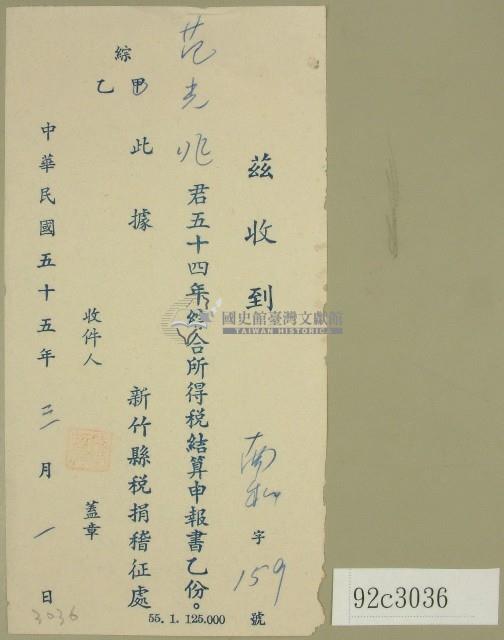 茲收到 南松字159號
范光兆君五十四年綜合所得稅結算申報書乙份。
此據
新竹縣稅捐稽征處
綜
甲
乙
收件人 蓋章
中華民國五十五年三月一日
55. 1. 125.000
3036
國史館臺灣文獻館
TAIWAN HISTORICA
92c3036